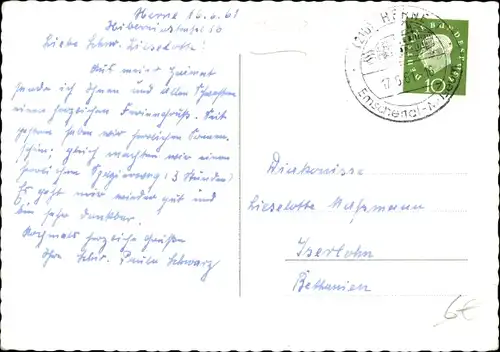 Herne 16.6.61
Hiberniastraße 10
Liebe Schw. Lieselotte!
Aus meiner Heimat
sende ich Ihnen und allen Schwestern
einen herzlichen Feriengruß. Seit
gestern haben wir herrlichen Sonnen-
schein; gleich machten wir einen
herrlichen Spaziergang (3 Stunden)
Es geht mir wieder gut und
bin sehr dankbar.
Nochmals herzliche Grüße
Ihre Schw. Paula Schwarz
HERNE
DEUTSCHE BUNDESPOST
10
Diakonisse
Lieselotte Maßmann
Iserlohn
Bethanien
6€